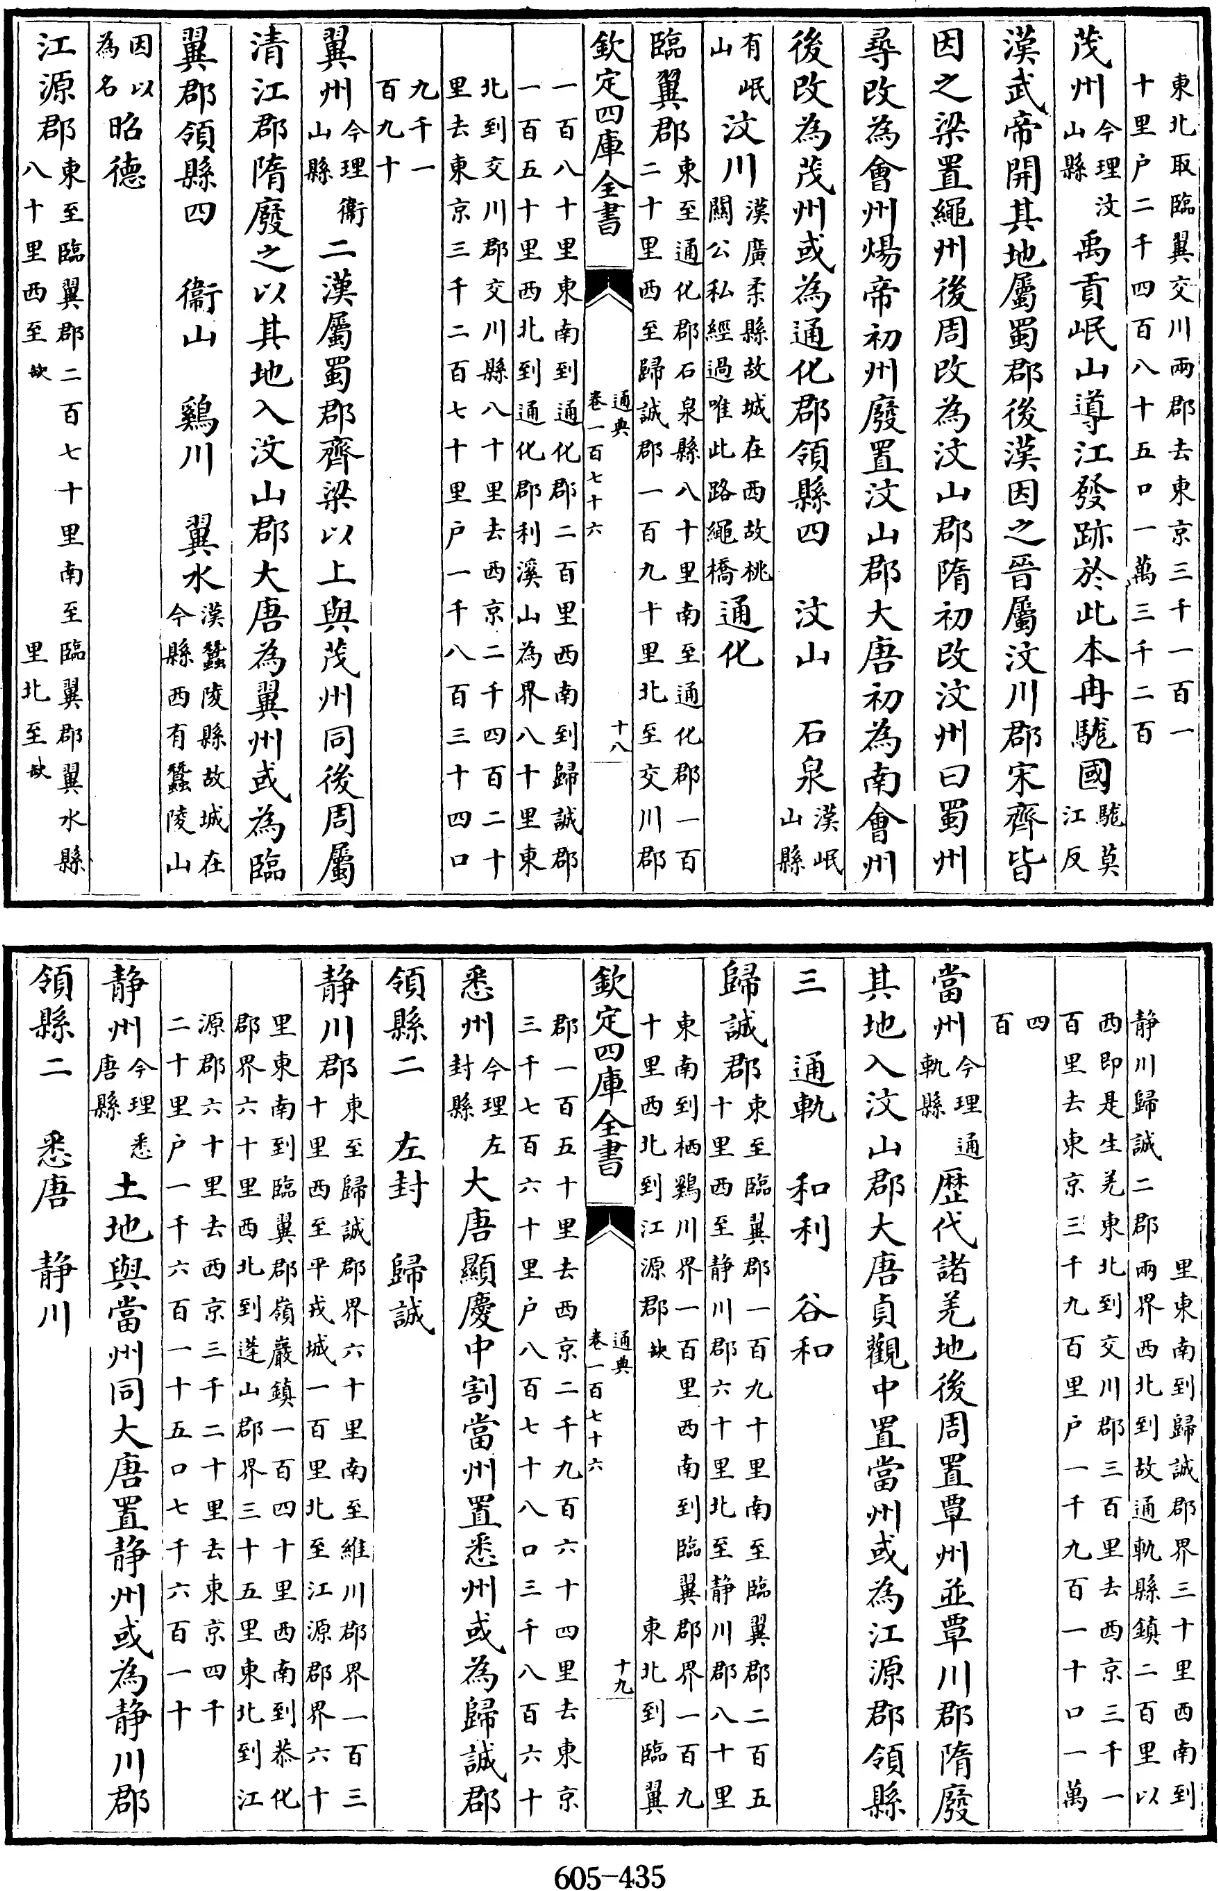 東北取臨翼交川兩郡去東京三千一百一
十里户二千四百八十五口一萬三千二百
茂州今理汶山縣禹貢岷山導江發跡於此本冉駹國駹莫江反
漢武帝開其地屬蜀郡後漢因之晉屬汶川郡宋齊皆
因之梁置繩州後周改為汶山郡隋初改汶州曰蜀州
尋改為會州煬帝初州廢置汶山郡大唐初為南會州
後改為茂州或為通化郡領縣四 汶山 石泉漢岷山縣
有岷山汶川漢廣柔縣故城在西故桃關公私經過唯此路繩橋通化
臨翼郡東至通化郡石泉縣八十里南至通化郡一百二十里西至歸誠郡一百九十里北至交川郡
欽定四庫全書 通典卷一百七十六 十八
一百八十里東南到通化郡二百里西南到歸誠郡
一百五十里西北到通化郡利溪山為界八十里東
北到交川郡交川縣八十里去西京二千四百二十
里去東京三千二百七十里户一千八百三十四口
九千一
百九十
翼州今理衞山縣二漢屬蜀郡齊梁以上與茂州同後周屬
清江郡隋廢之以其地入汶山郡大唐為翼州或為臨
翼郡領縣四 衞山 鷄川 翼水漢蠶陵縣故城在今縣西有蠶陵山
因以為名昭德
江源郡東至臨翼郡二百七十里南至臨翼郡翼水縣八十里西至缺 里北至缺
里東南到歸誠郡界三十里西南到
静川歸誠二郡兩界西北到故通軌縣鎮二百里以
西即是生羌東北到交川郡三百里去西京三千一
百里去東京三千九百里户一千九百一十口一萬
四
百
當州今理通軌縣歴代諸羌地後周置覃州並覃川郡隋廢
其地入汶山郡大唐貞觀中置當州或為江源郡領縣
三 通軌 和利 谷和
歸誠郡東至臨翼郡一百九十里南至臨翼郡二百五十里西至静川郡六十里北至静川郡八十里
東南到栖鷄川界一百里西南到臨翼郡界一百九
十里西北到江源郡缺 東北到臨翼
欽定四庫全書 通典卷一百七十六 十九
郡一百五十里去西京二千九百六十四里去東京
三千七百六十里户八百七十八口三千八百六十
悉州今理左封縣大唐顯慶中割當州置悉州或為歸誠郡
領縣二 左封 歸誠
静川郡東至歸誠郡界六十里南至維川郡界一百三十里西至平戎城一百里北至江源郡界六十
里東南到臨翼郡嶺巖鎮一百四十里西南到恭化
郡界六十里西北到蓬山郡界三十五里東北到江
源郡六十里去西京三千二十里去東京四千
二十里户一千六百一十五口七千六百一十
静州今理悉唐縣土地與當州同大唐置静州或為静川郡
領縣二 悉唐 静川
605-435